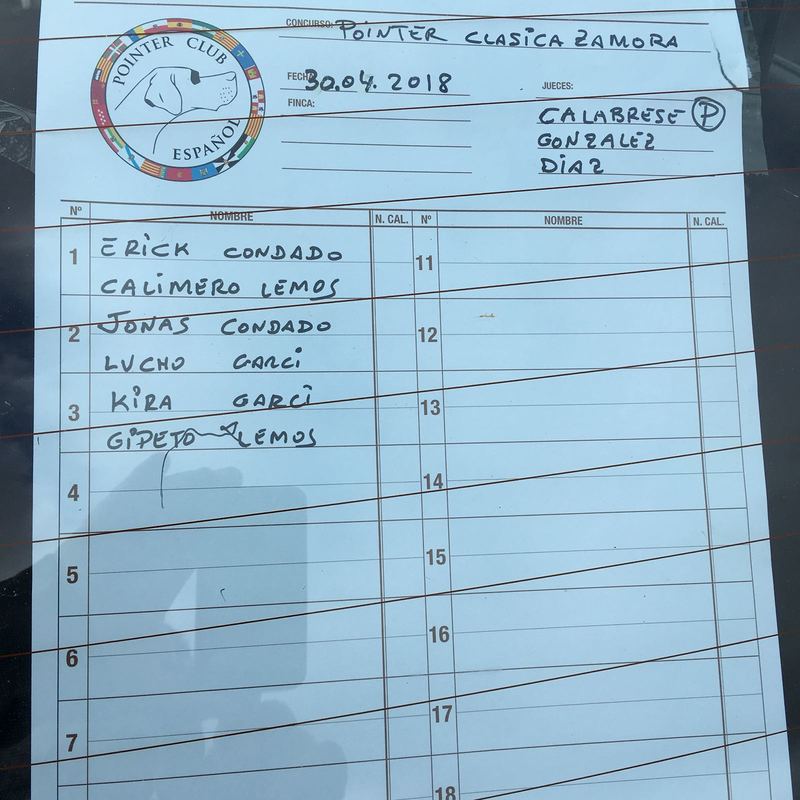 POINTER CLUB
ESPAÑOL
CONCURSO: POINTER CLASICA ZAMORA
FECHA 30.04.2018
FINCA:
JUECES:
CALABRESE P
GONZALEZ
DIAZ
Nº NOMBRE N. CAL. Nº NOMBRE N. CAL.
1 ERICK CONDADO 11
CALIMERO LEMOS
2 JONAS CONDADO 12
LUCHO GARCI
3 KIRA GARCI 13
GIPETO LEMOS
4 14
5 15
6 16
7 17
18